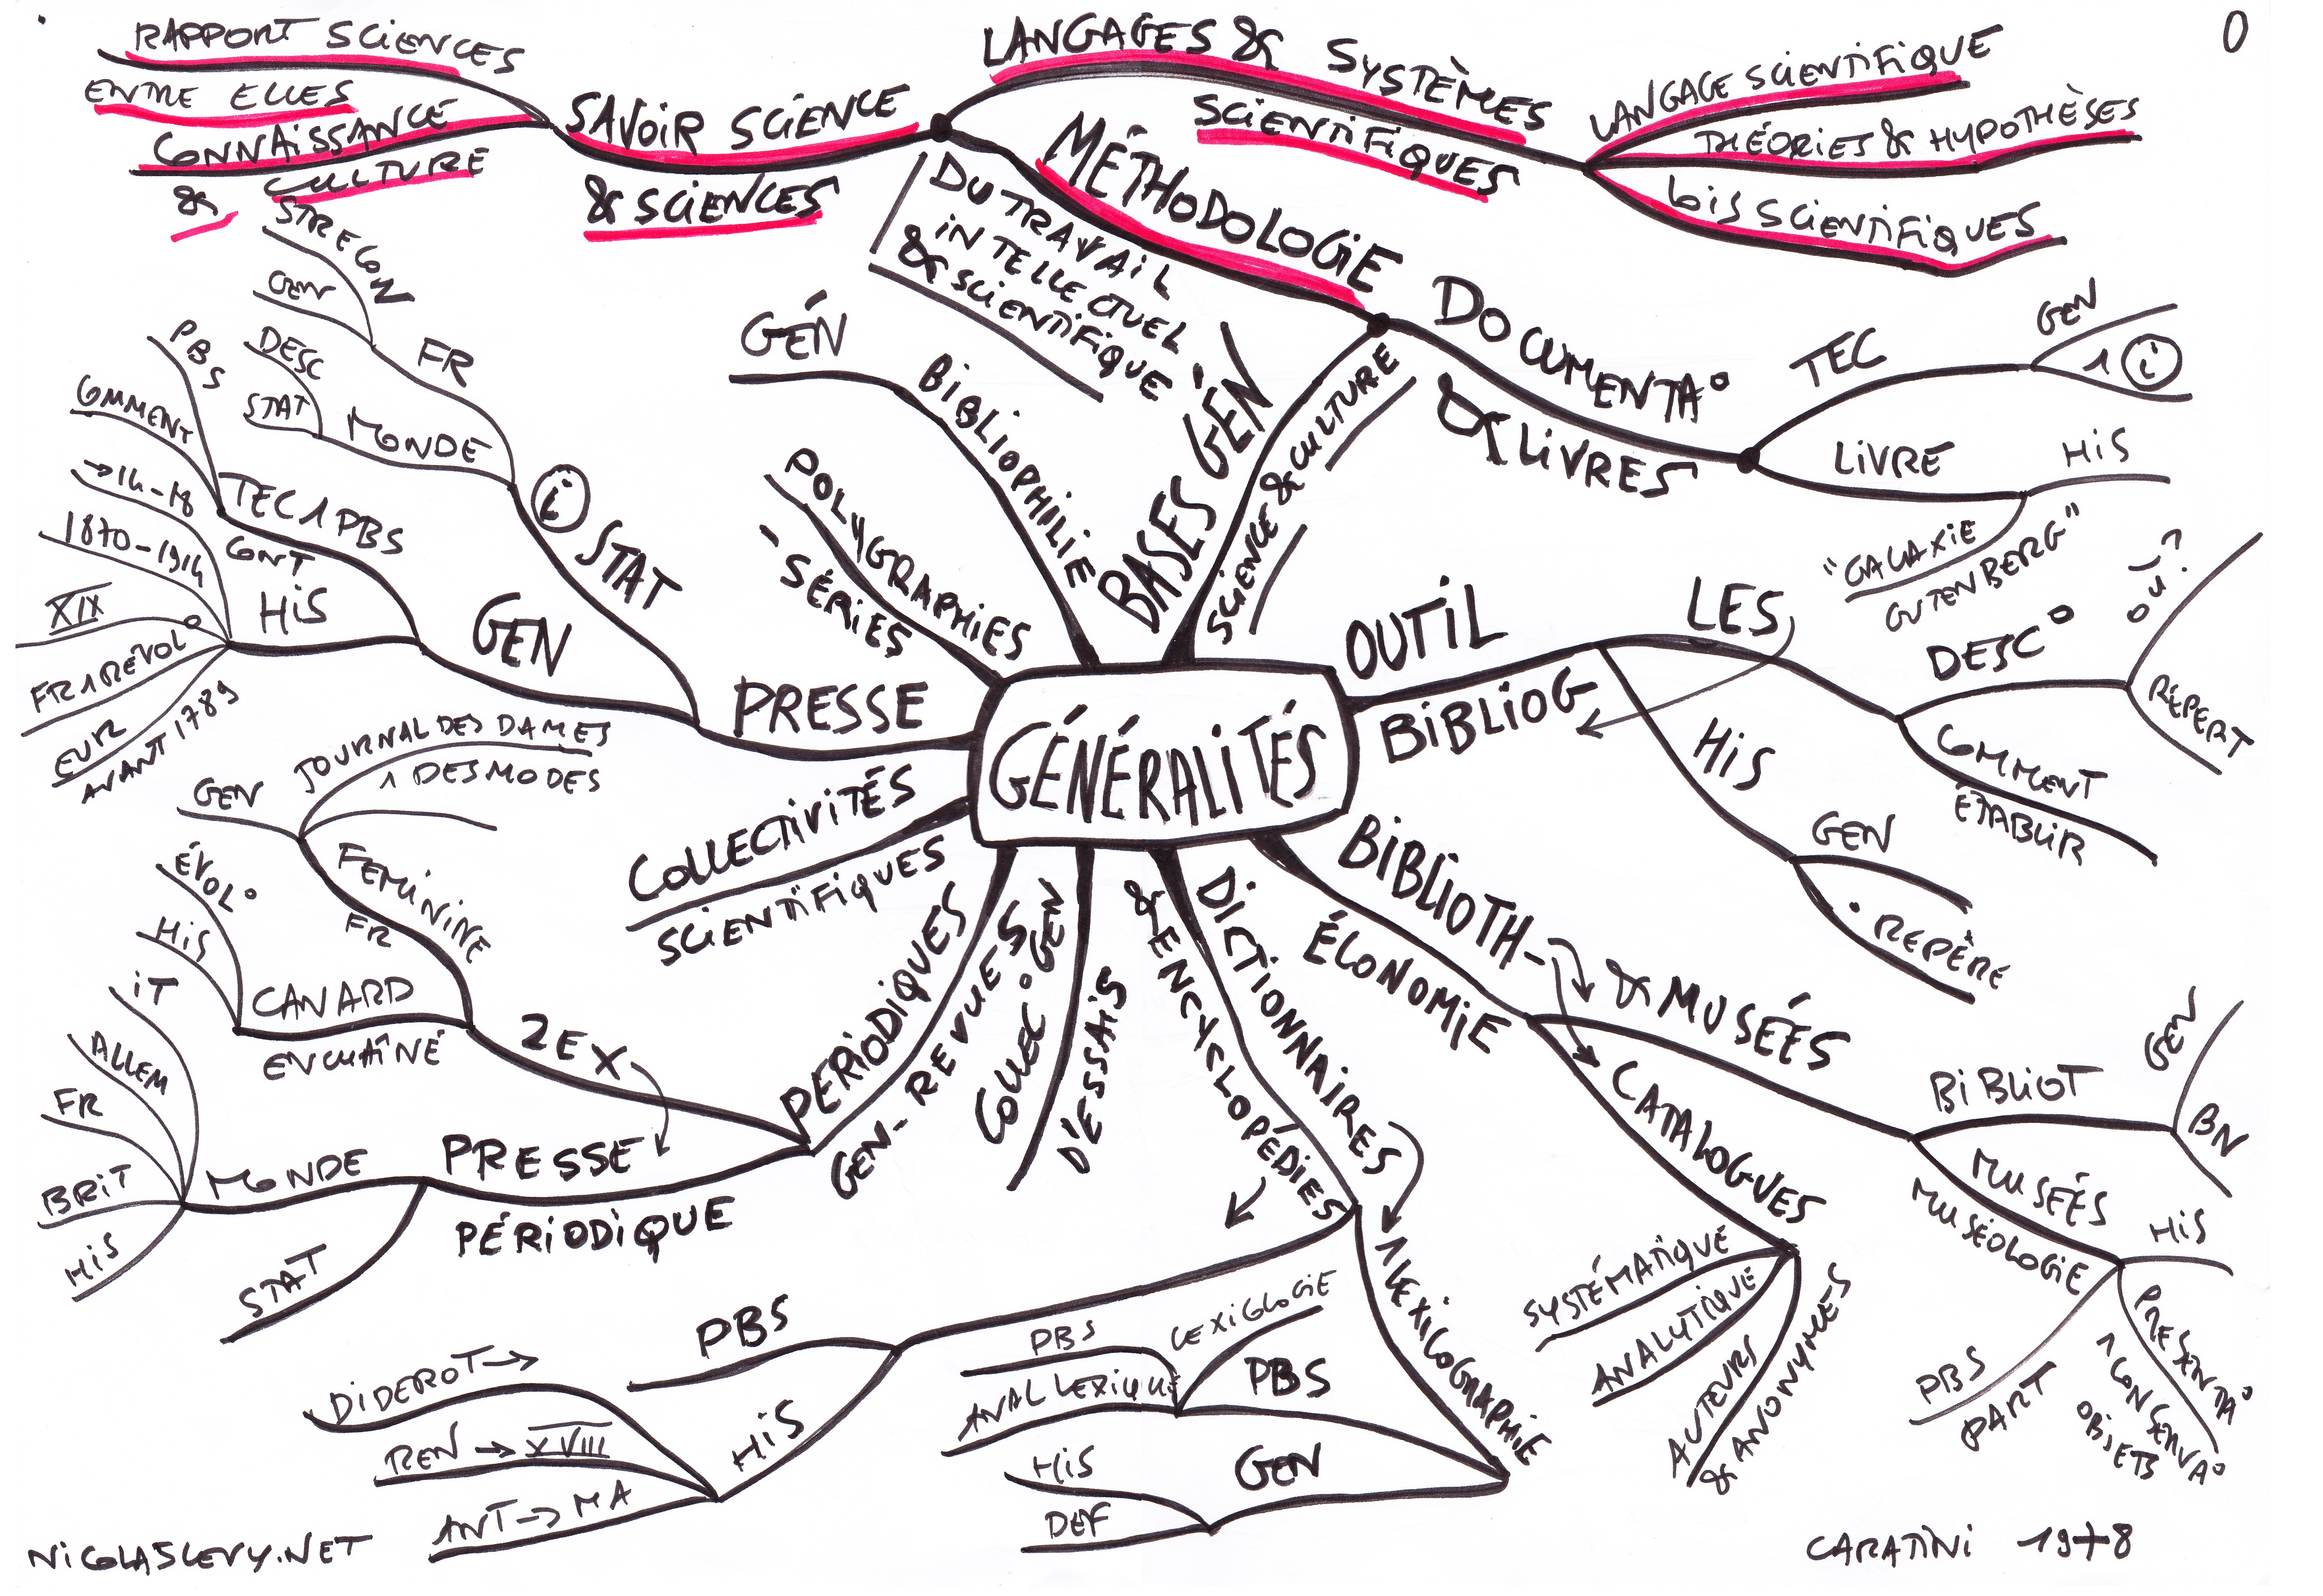 RAPPORT SCIENCES
ENTRE ELLES
CONNAISSANCE
& CULTURE
SAVOIR SCIENCE
& SCIENCES
LANGAGES & SYSTÈMES
SCIENTIFIQUES
LANGAGE SCIENTIFIQUE
THÉORIES & HYPOTHÈSES
LOIS SCIENTIFIQUES
0
MÉTHODOLOGIE
DU TRAVAIL
INTELLECTUEL
& SCIENTIFIQUE
DOCUMENTA°
& LIVRES
TEC
GEN
1 i
LIVRE
HIS
"GALAXIE
GUTENBERG"
BASES GÉN
SCIENCE & CULTURE
GÉN
BIBLIOPHILIE
POLYGRAPHIES
SÉRIES
GÉNÉRALITÉS
OUTIL
BIBLIOG
LES
DESC°
RÉPERT
COMMENT
ÉTABLIR
HIS
GEN
REPÈRE
BIBLIOTH-
ÉCONOMIE
& MUSÉES
BIBLIOT
GEN
BN
MUSÉES
MUSÉOLOGIE
HIS
PRESENTA°
1 CONSERVA°
OBJETS
PBS
PART
CATALOGUES
SYSTÉMATIQUE
ANALYTIQUE
AUTEURS
& ANONYMES
DICTIONNAIRES
& ENCYCLOPÉDIES
1 LEXICOGRAPHIE
PBS
LEXIGLOGIE
PBS
ANAL LEXIQUE
GEN
HIS
DEF
PBS
HIS
DIDEROT →
REN → XVIII
ANT → MA
COLLEC° GEN
D'ESSAIS
PERIODIQUES
GEN - REVUES
2 EX
FEMININE
FR
GEN
JOURNAL DES DAMES
1 DES MODES
CANARD
ENCHAÎNÉ
ÉVOL°
HIS
PRESSE
PÉRIODIQUE
MONDE
IT
ALLEM
FR
BRIT
HIS
STAT
COLLECTIVITÉS
SCIENTIFIQUES
PRESSE
i STAT
FR
STRE CON
GEN
MONDE
DESC
STAT
GEN
TEC 1 PBS
CONT
PBS
COMMENT
HIS
→ 14-18
1870-1914
XIX
FR 1 RÉVOL°
EUR
AVANT 1789
NICOLASLEVY.NET
CARATINI 1978